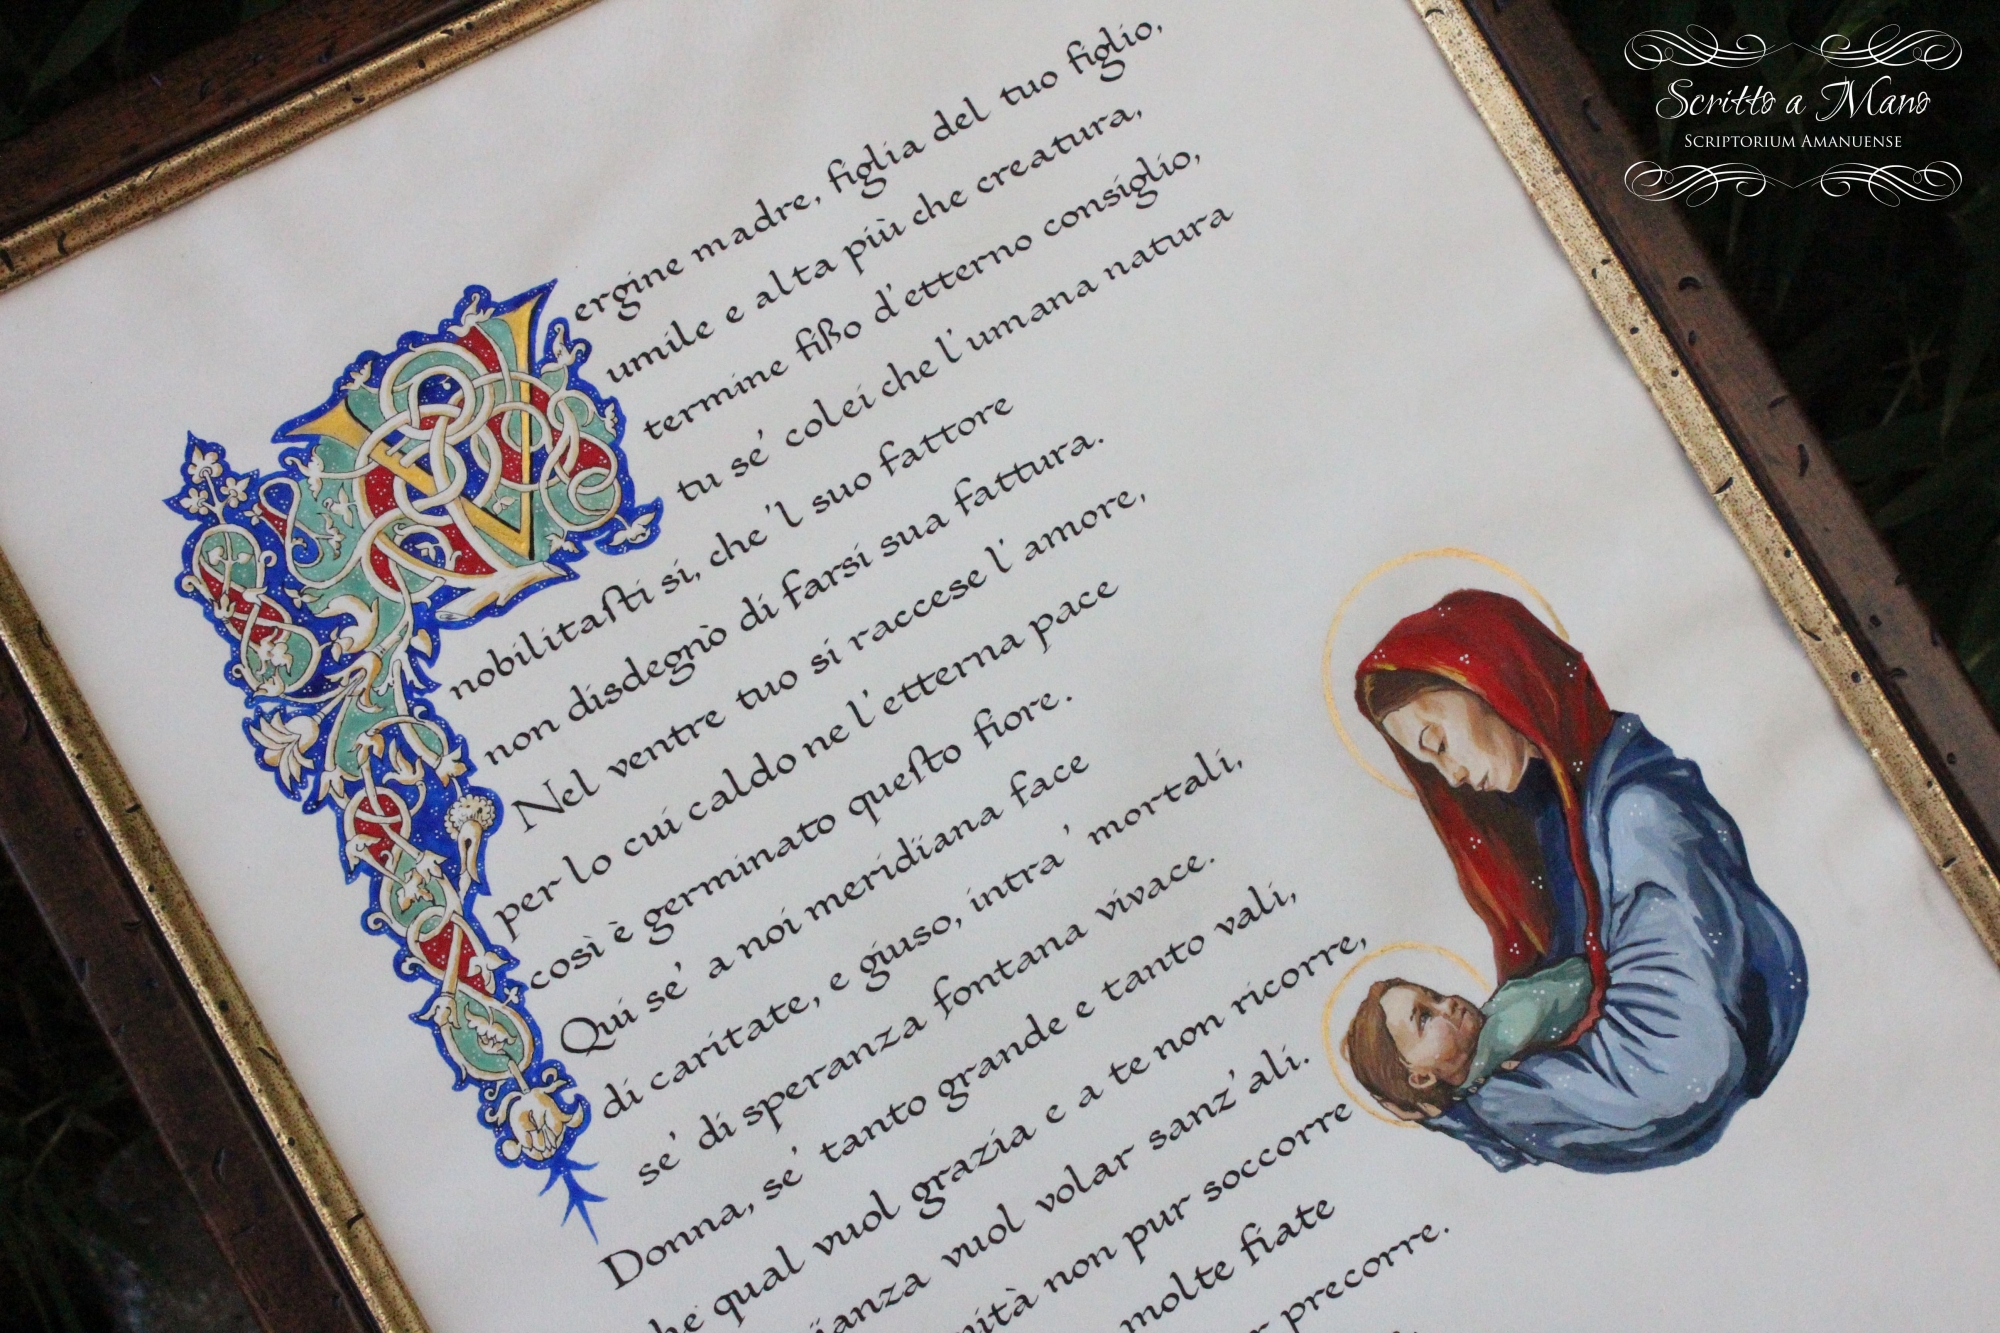 Vergine madre, figlia del tuo figlio,
umile e alta più che creatura,
termine fißo d'etterno consiglio,
tu se' colei che l'umana natura
nobilitaſti sì, che 'l suo fattore
non disdegnò di farsi sua fattura.
Nel ventre tuo si raccese l'amore,
per lo cui caldo ne l'etterna pace
così è germinato queſto fiore.
Qui se' a noi meridiana face
di caritate, e giuso, intra ' mortali,
se' di speranza fontana vivace.
Donna, se' tanto grande e tanto vali,
qual vuol grazia e a te non ricorre,
vuol volar sanz'ali.
non pur soccorre
molte fiate
precorre.
Scritto a Mano
Scriptorium Amanuense